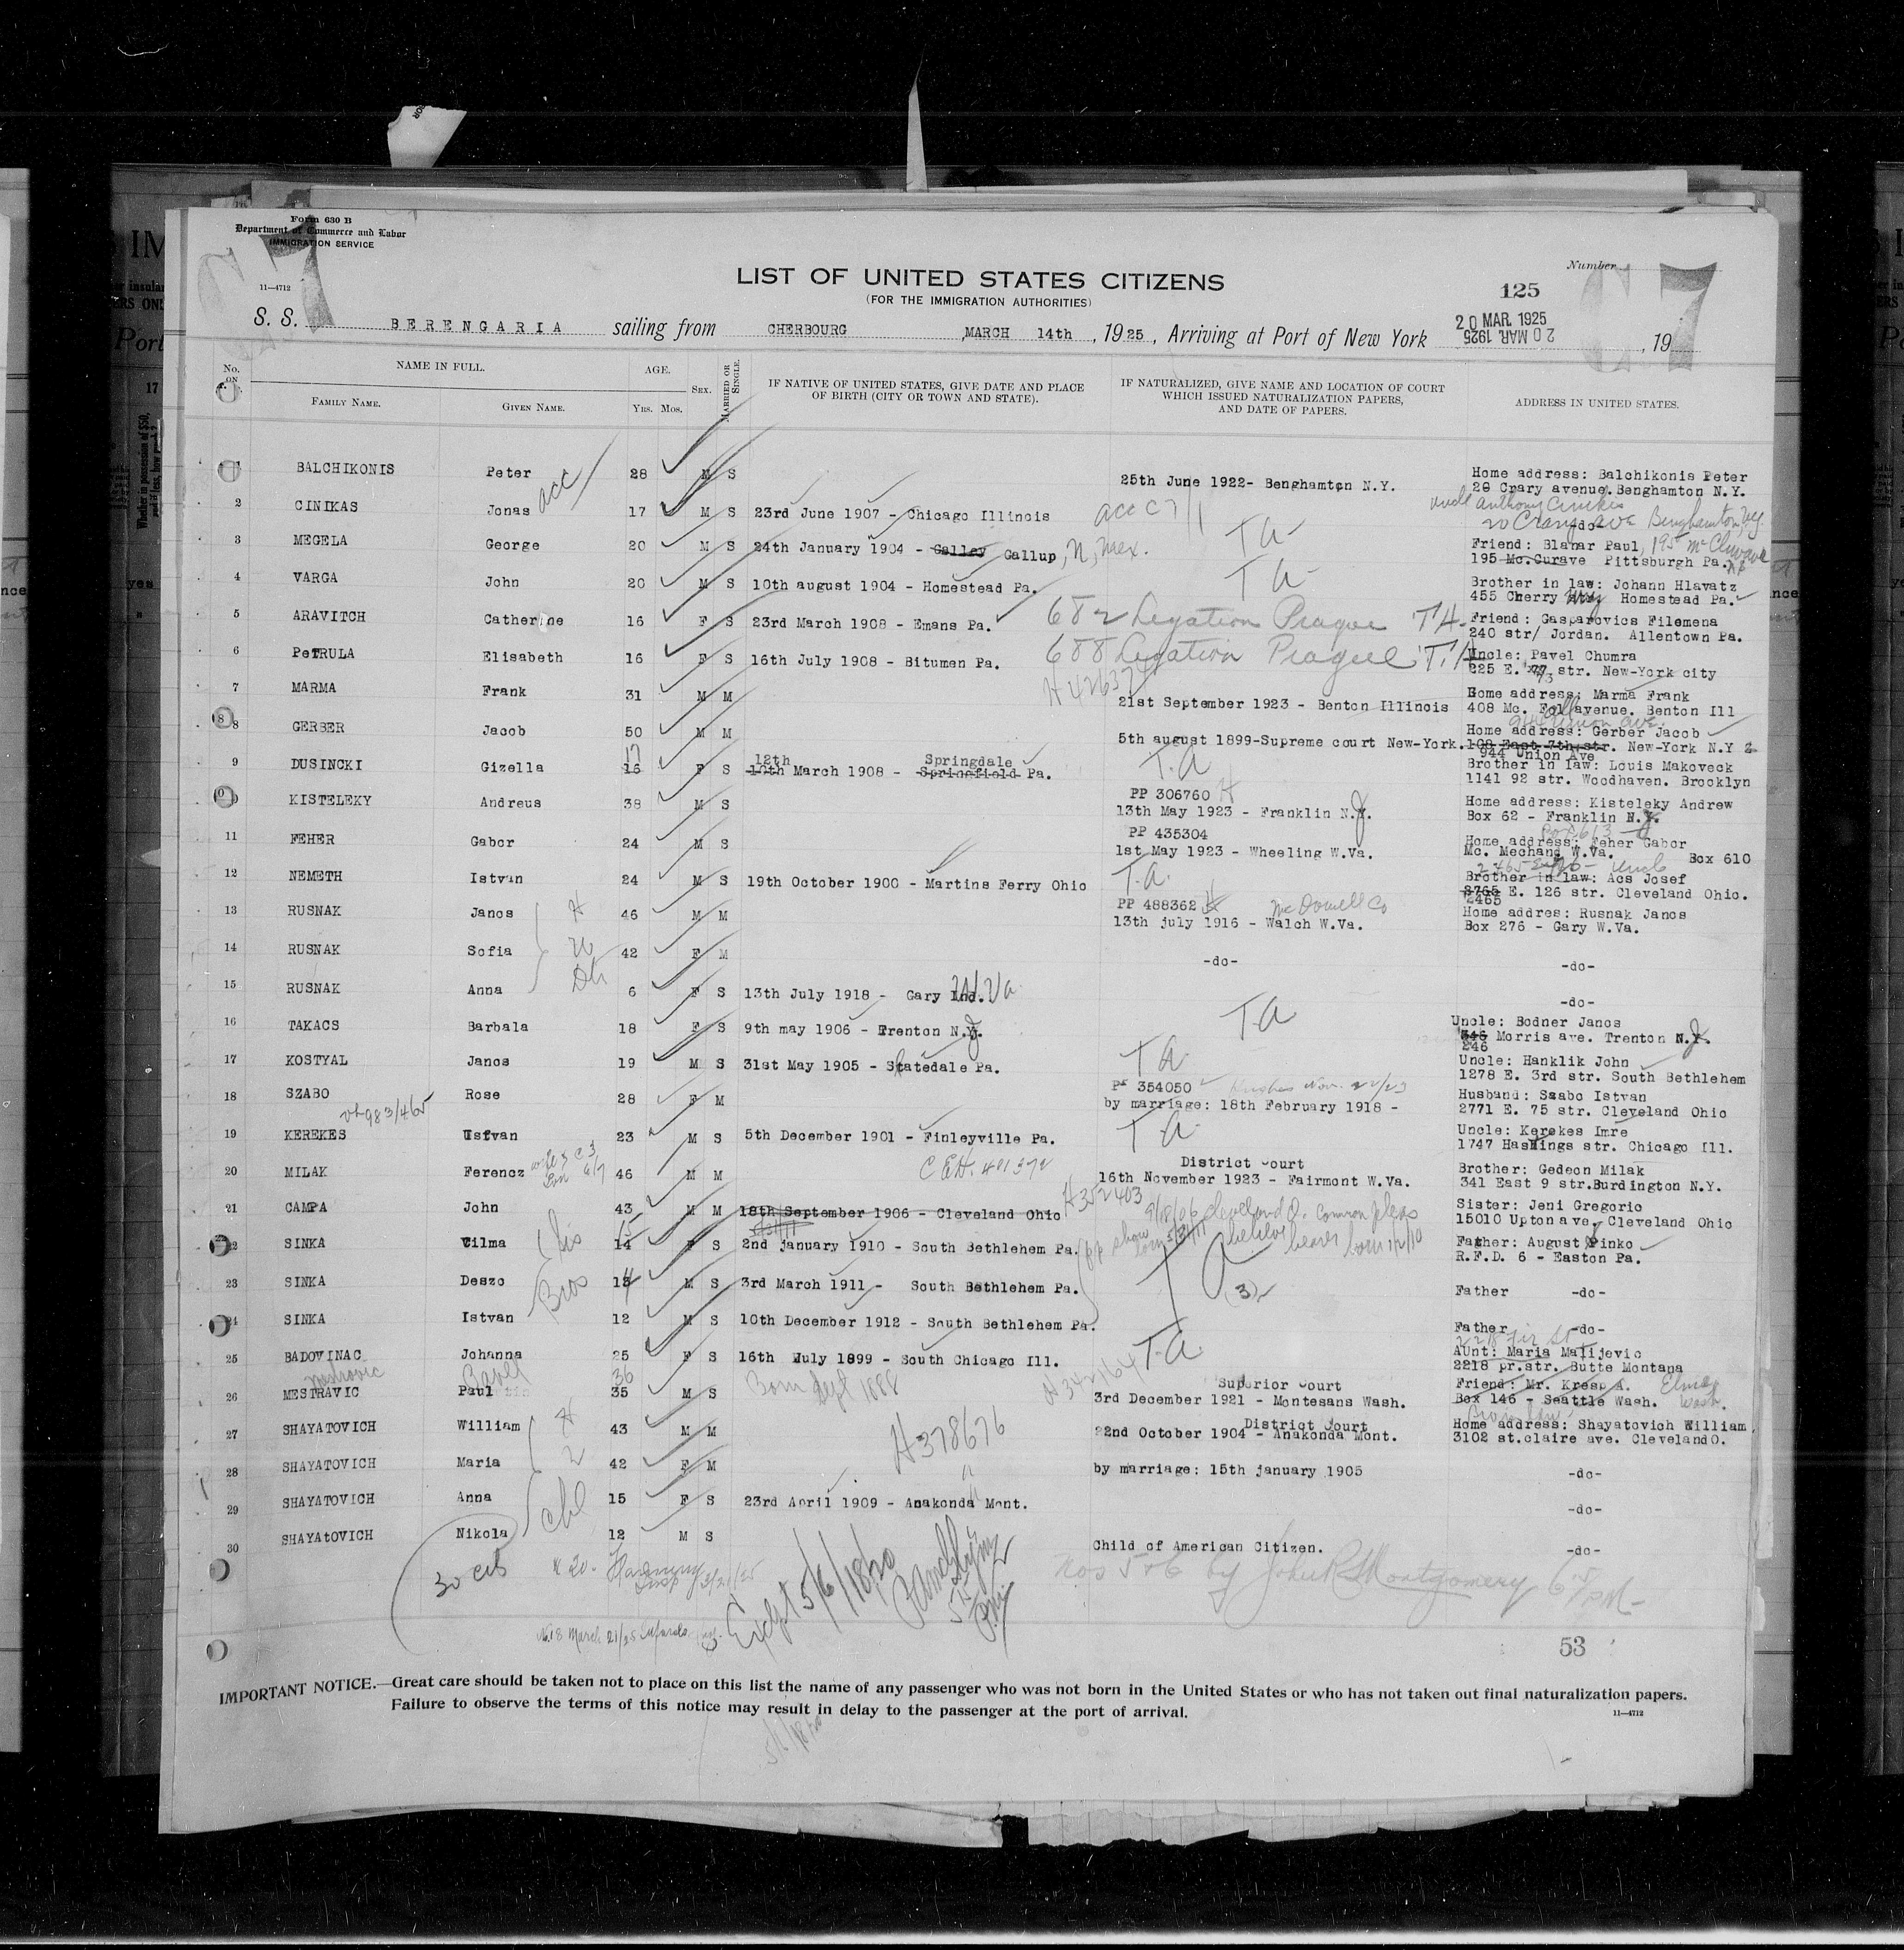 Form 630 B
Department of Commerce and Labor
IMMIGRATION SERVICE
11—4712
Number
125
LIST OF UNITED STATES CITIZENS
(FOR THE IMMIGRATION AUTHORITIES)
S. S. BERENGARIA sailing from CHERBOURG , MARCH 14th , 1925 , Arriving at Port of New York 20 MAR. 1925 , 19
20 MAR. 1925
C 7
No. on
NAME IN FULL.
FAMILY NAME.
GIVEN NAME.
AGE.
YRS. MOS.
SEX.
MARRIED OR SINGLE.
IF NATIVE OF UNITED STATES, GIVE DATE AND PLACE OF BIRTH (CITY OR TOWN AND STATE).
IF NATURALIZED, GIVE NAME AND LOCATION OF COURT WHICH ISSUED NATURALIZATION PAPERS, AND DATE OF PAPERS.
ADDRESS IN UNITED STATES.
1 BALCHIKONIS Peter 28 M S 25th June 1922- Benghamton N.Y. Home address: Balchikonis Peter
20 Crary avenue. Benghamton N.Y.
acc
2 CINIKAS Jonas 17 M S 23rd June 1907 - Chicago Illinois acc C7/1 uncle Anthony Cinikas
20 Crary ave Binghamton, N.Y. -do-
3 MEGELA George 20 M S 24th January 1904 - Galley Gallup, N, Mex. TA Friend: Blanar Paul, 195 McClure ave
195 Mc.Curave Pittsburgh Pa.
4 VARGA John 20 M S 10th august 1904 - Homestead Pa. TA Brother in law: Johann Hlavatz
455 Cherry Way Homestead Pa.
5 ARAVITCH Catherine 16 F S 23rd March 1908 - Emans Pa. 682 Legation Prague TA. Friend: Gasparovics Filomena
240 str/ Jordan. Allentown Pa.
6 PeTRULA Elisabeth 16 F S 16th July 1908 - Bitumen Pa. 688 Legation Prague T.A. Uncle: Pavel Chumra
225 E. 77 73 str. New-York city
7 MARMA Frank 31 M M 21st September 1923 - Benton Illinois Home address: Marma Frank
408 Mc. avenue. Benton Ill
8 GERBER Jacob 50 M M 5th august 1899-Supreme court New-York. Home address: Gerber Jacob
108 East 7th str. New-York N.Y
944 Union Ave
9 DUSINCKI Gizella 17 16 F S 12th Springdale
10th March 1908 - Springfield Pa. T.A Brother in law: Louis Makoveck
1141 92 str. Woodhaven. Brooklyn
10 KISTELEKY Andreus 38 M S PP 306760
13th May 1923 - Franklin N.J. Home address: Kisteleky Andrew
Box 62 - Franklin N.J.
11 FEHER Gabor 24 M S PP 435304
1st May 1923 - Wheeling W.Va. Home address: Feher Gabor
Mc. Mechand W.Va. Box 610
12 NEMETH Istvan 24 M S 19th October 1900 - Martins Ferry Ohio T.A. Brother in law: Acs Josef Uncle
8765 E. 126 str. Cleveland Ohio.
2465
13 RUSNAK Janos 46 M M PP 488362 McDowell Co
13th july 1916 - Walch W.Va. Home addres: Rusnak Janos
Box 276 - Gary W.Va.
14 RUSNAK Sofia 42 F M -do- -do-
15 RUSNAK Anna 6 F S 13th July 1918 - Gary Ind. W.Va. -do-
16 TAKACS Barbala 18 F S 9th may 1906 - Trenton N.J. TA Uncle: Bodner Janos
346 Morris ave. Trenton N.J.
246
17 KOSTYAL Janos 19 M S 31st May 1905 - Slatedale Pa. TA Uncle: Hanklik John
1278 E. 3rd str. South Bethlehem
18 SZABO Rose 28 F M PP 354050
by marriage: 18th February 1918 - Husband: Szabo Istvan
2771 E. 75 str. Cleveland Ohio
983/465
19 KEREKES Istvan 23 M S 5th December 1901 - Finleyville Pa. TA Uncle: Kerekes Imre
1747 Hastings str. Chicago Ill.
20 MILAK Ferencz 46 M M District Court
16th November 1923 - Fairmont W.Va. Brother: Gedeon Milak
341 East 9 str.Burdington N.Y.
21 CAMPA John 43 M M 18th September 1906 - Cleveland Ohio H352403 9/18/06 Cleveland O. Common pleas Sister: Jeni Gregorio
15010 Upton ave. Cleveland Ohio
22 SINKA Vilma 15 14 F S 2nd january 1910 - South Bethlehem Pa. Father: August Pinko
R.F.D. 6 - Easton Pa.
23 SINKA Deszo 14 M S 3rd March 1911 - South Bethlehem Pa. TA (3) Father -do-
24 SINKA Istvan 12 M S 10th December 1912 - South Bethlehem Pa. Father -do-
25 BADOVINAC Johanna 25 F S 16th July 1899 - South Chicago Ill. T.A. Aunt: Maria Matijevic
2218 pr.str. Butte Montana
26 MESTRAVIC Paul Pavel 36 35 M S Born Sept 1888 Superior Court
3rd December 1921 - Montesans Wash. Friend: Mr. Kresp A. Elma
Box 146 - Seattle Wash. Wash.
27 SHAYATOVICH William 43 M M H378676 District Court
22nd October 1904 - Anakonda Mont. Home address: Shayatovich William
3102 st.claire ave. Cleveland O.
28 SHAYATOVICH Maria 42 F M by marriage: 15th january 1905 -do-
29 SHAYATOVICH Anna 15 F S 23rd April 1909 - Anakonda Mont. -do-
30 SHAYAtOVICH Nikola 12 M S Child of American Citizen. -do-
30 cits
Nos 5 & 6 by John R Montgomery
53
IMPORTANT NOTICE.—Great care should be taken not to place on this list the name of any passenger who was not born in the United States or who has not taken out final naturalization papers.
Failure to observe the terms of this notice may result in delay to the passenger at the port of arrival.
11—4712